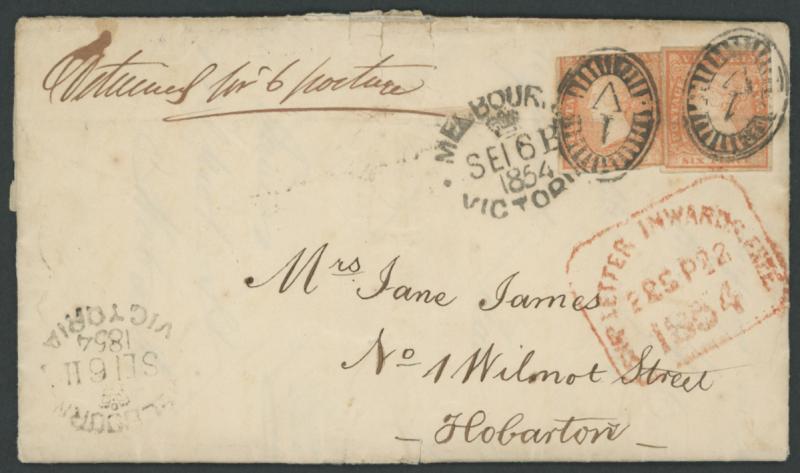 Detained for postage
MELBOURNE
SE 16 B
1854
VICTORIA
1 V
1 V
SIX
SHIP LETTER INWARDS FREE
SP 22
1854
Mrs Jane James
No 1 Wilmot Street
Hobarton
MELBOURNE
SE 16 11
1854
VICTORIA